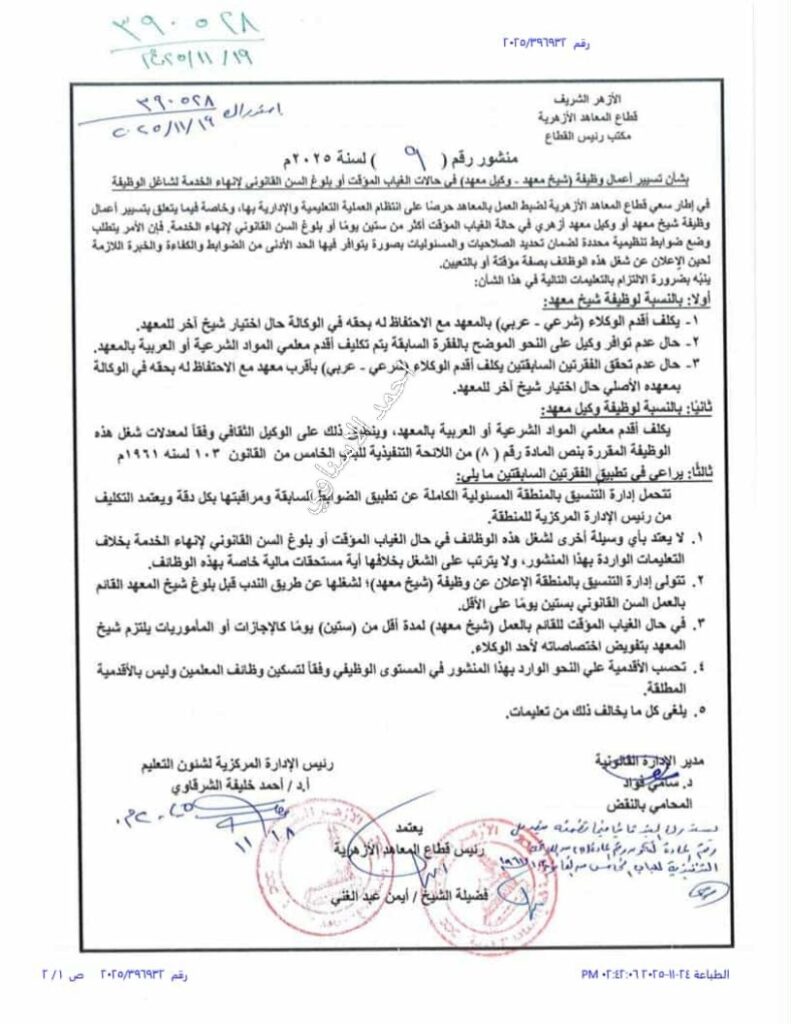 ٣٩٠٥٢٨
٢٠٢٥/١١/١٩
رقم ٢٠٢٥/٣٩٦٩٣٢
الأزهر الشريف
قطاع المعاهد الأزهرية
مكتب رئيس القطاع
استدراك ٣٩٠٥٢٨
٢٠٢٥/١١/١٩
منشور رقم ( ٩ ) لسنة ٢٠٢٥م
بشأن تسيير أعمال وظيفة (شيخ معهد - وكيل معهد) في حالات الغياب المؤقت أو بلوغ السن القانوني لإنهاء الخدمة لشاغل الوظيفة
في إطار سعي قطاع المعاهد الأزهرية لضبط العمل بالمعاهد حرصًا على انتظام العملية التعليمية والإدارية بها، وخاصة فيما يتعلق بتسيير أعمال
وظيفة شيخ معهد أو وكيل معهد أزهري في حالة الغياب المؤقت أكثر من ستين يومًا أو بلوغ السن القانوني لإنهاء الخدمة. فإن الأمر يتطلب
وضع ضوابط تنظيمية محددة لضمان تحديد الصلاحيات والمسئوليات بصورة يتوافر فيها الحد الأدنى من الضوابط والكفاءة والخبرة اللازمة
لحين الإعلان عن شغل هذه الوظائف بصفة مؤقتة أو بالتعيين.
ينبّه بضرورة الالتزام بالتعليمات التالية في هذا الشأن:
أولا: بالنسبة لوظيفة شيخ معهد:
١- يكلف أقدم الوكلاء (شرعي - عربي) بالمعهد مع الاحتفاظ له بحقه في الوكالة حال اختيار شيخ آخر للمعهد.
٢- حال عدم توافر وكيل على النحو الموضح بالفقرة السابقة يتم تكليف أقدم معلمي المواد الشرعية أو العربية بالمعهد.
٣- حال عدم تحقق الفقرتين السابقتين يكلف أقدم الوكلاء (شرعي - عربي) بأقرب معهد مع الاحتفاظ له بحقه في الوكالة
بمعهده الأصلي حال اختيار شيخ آخر للمعهد.
ثانيًا: بالنسبة لوظيفة وكيل معهد:
يكلف أقدم معلمي المواد الشرعية أو العربية بالمعهد، وينطبق ذلك على الوكيل الثقافي وفقاً لمعدلات شغل هذه
الوظيفة المقررة بنص المادة رقم ( ٨ ) من اللائحة التنفيذية للبند الخامس من القانون ١٠٣ لسنه ١٩٦١م
ثالثًا: يراعى في تطبيق الفقرتين السابقتين ما يلي:
تتحمل إدارة التنسيق بالمنطقة المسئولية الكاملة عن تطبيق الضوابط السابقة ومراقبتها بكل دقة ويعتمد التكليف
من رئيس الإدارة المركزية للمنطقة.
١. لا يعتد بأي وسيلة أخرى لشغل هذه الوظائف في حال الغياب المؤقت أو بلوغ السن القانوني لإنهاء الخدمة بخلاف
التعليمات الواردة بهذا المنشور، ولا يترتب على الشغل بخلافها أية مستحقات مالية خاصة بهذه الوظائف.
٢. تتولى إدارة التنسيق بالمنطقة الإعلان عن وظيفة (شيخ معهد)؛ لشغلها عن طريق الندب قبل بلوغ شيخ المعهد القائم
بالعمل السن القانوني بستين يومًا على الأقل.
٣. في حال الغياب المؤقت للقائم بالعمل (شيخ معهد) لمدة أقل من (ستين) يومًا كالإجازات أو المأموريات يلتزم شيخ
المعهد بتفويض اختصاصاته لأحد الوكلاء.
٤. تحسب الأقدمية علي النحو الوارد بهذا المنشور في المستوى الوظيفي وفقاً لتسكين وظائف المعلمين وليس بالأقدمية
المطلقة.
٥. يلغى كل ما يخالف ذلك من تعليمات.
مدير الإدارة القانونية
د. سامي فواد
المحامي بالنقض
رئيس الإدارة المركزية لشئون التعليم
أ.د / أحمد خليفة الشرقاوي
يعتمد
رئيس قطاع المعاهد الأزهرية
فضيلة الشيخ / أيمن عبد الغني
الطباعة ٢٤-١١-٢٠٢٥ ٠٢:٤٢:٠٦ PM
رقم ٢٠٢٥/٣٩٦٩٣٢ ص ٢/١